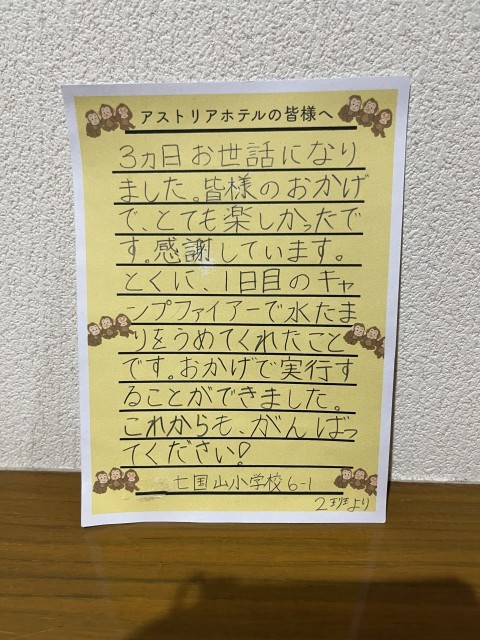 アストリアホテルの皆様へ
3ヵ日お世話になり
ました。皆様のおかげ
で、とても楽しかったで
す。感謝しています。
とくに、1日目のキャ
ンプファイアーで水たま
りをうめてくれたこと
です。おかげで実行す
ることができました。
これからも、がんばっ
てください!
七国山小学校6-1
2班より